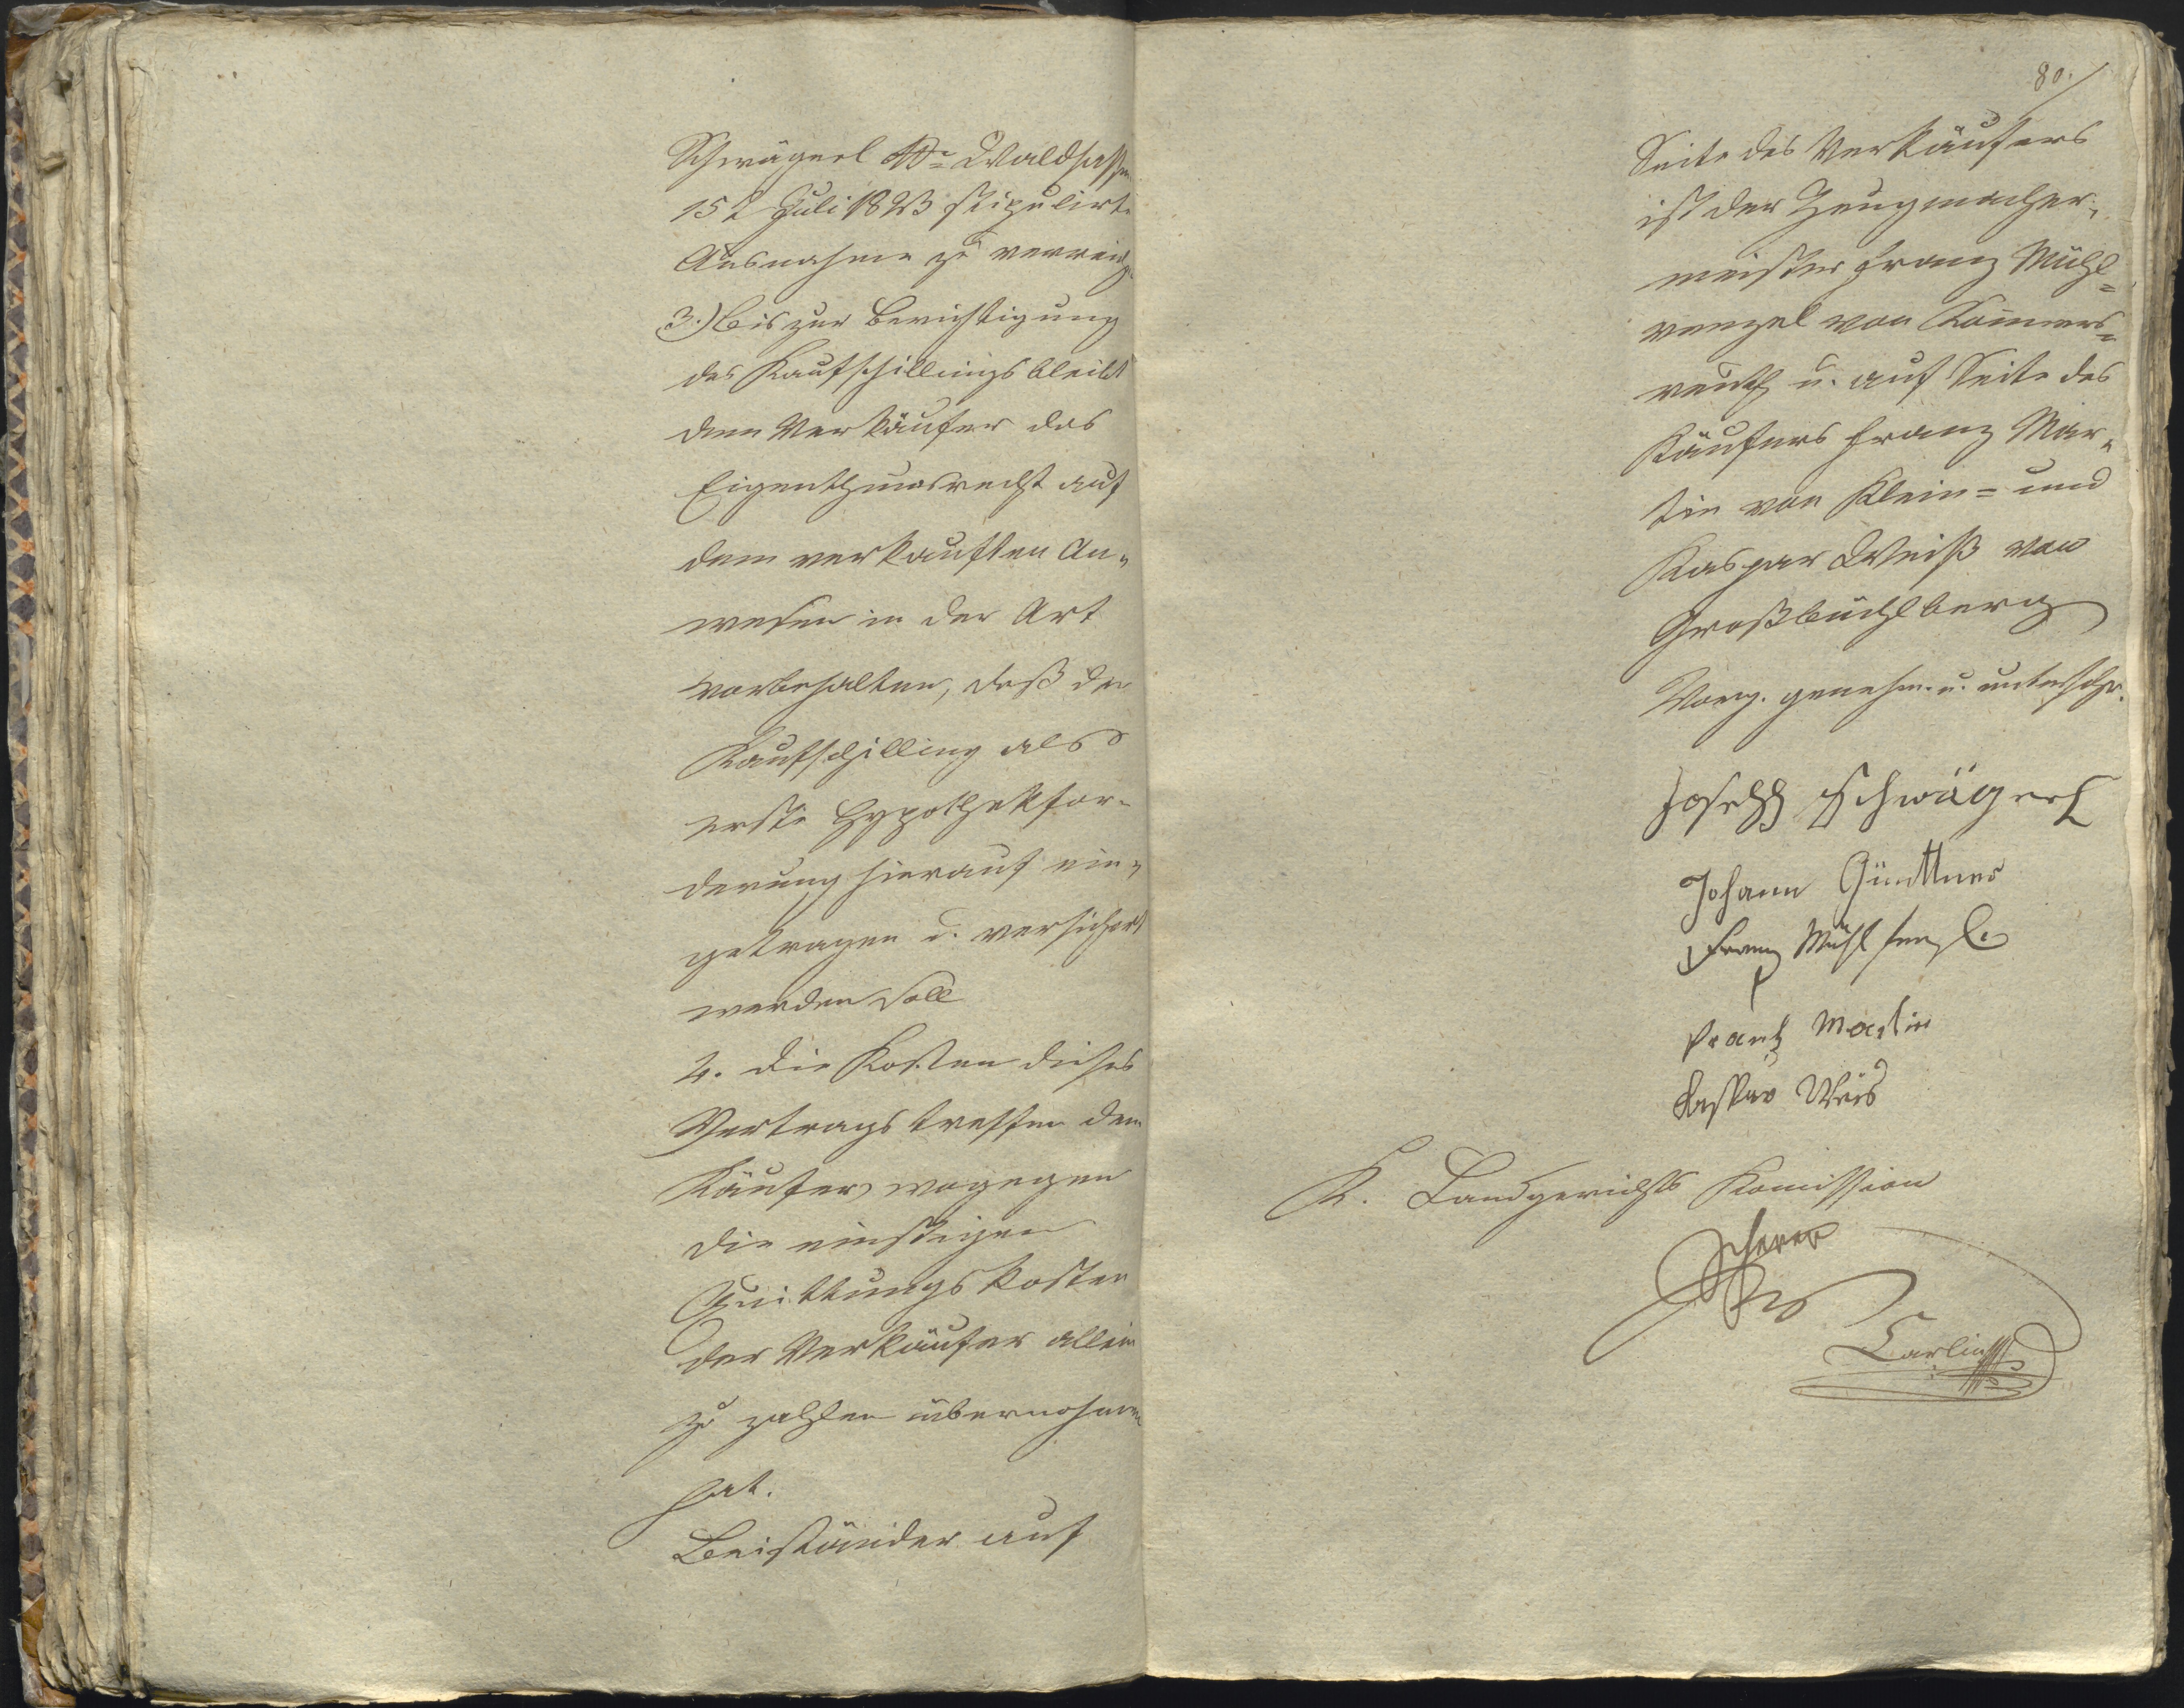 Schwägerl dd. Waldsassen
15t Juli 1823 stipulirte
Ausnahme zu verreich
3.) Bis zur Berichtigung
des Kaufschillings bleibt
dem Verkäufer das
Eigenthumsrecht auf
dem verkauften An-
wesen in der Art
vorbehalten, daß der
Kaufschilling als
erste Hypothekfor-
derung hierauf ein-
getragen u. versichert
werden soll
4. Die Kosten dieses
Vertrags treffen den
Käufer, wogegen
die einstigen
Quittungskosten
der Verkäufer allein
zu zahlen übernohmen
hat.
Beiständer auf
80.
Seite des Verkäufers
ist der Zeugmacher-
meister Franz Mühl=
venzel von Konners=
reuth u. auf Seite des
Käufers Franz Mar-
tin von Klein= und
Kaspar Weiß von
Großbüchlberg
Vorg. genehm. u. unterschr.
Joseph Schwägerl
Johann Günttner
Franz Mühlfenzl
Frantz Martin
Kaspar Weis
K. Landgerichts Komission
Scherer
Carling